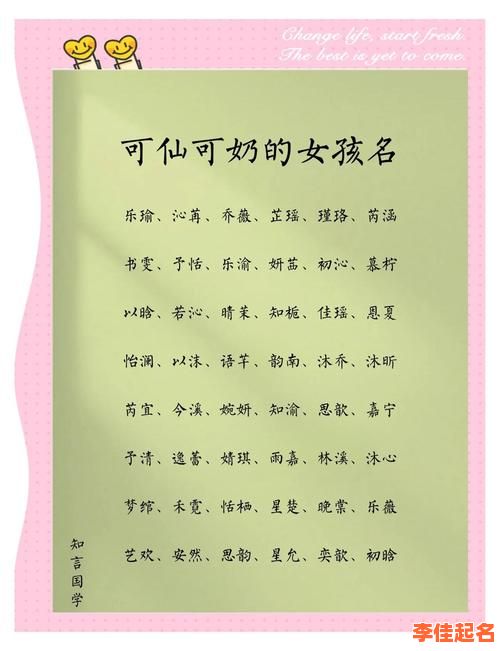 Change life, start fresh.
The best is yet to come.
可仙可奶的女孩名
乐瑜、沁苒、乔薇、芷瑶、瑾珞、芮涵
书雯、予恬、乐渝、妍茜、初沁、慕柠
以晗、若沁、晴茉、知栀、佳瑶、恩夏
怡澜、以沫、语芊、韵南、沐乔、沐昕
芮宜、今溪、婉妍、知渝、思歆、嘉宁
予清、逸蕾、婧琪、雨嘉、林溪、沐心
梦绾、禾霓、恬栖、星楚、晚棠、乐薇
艺欢、安然、思韵、星允、奕歆、初晗
知言国学
李佳起名